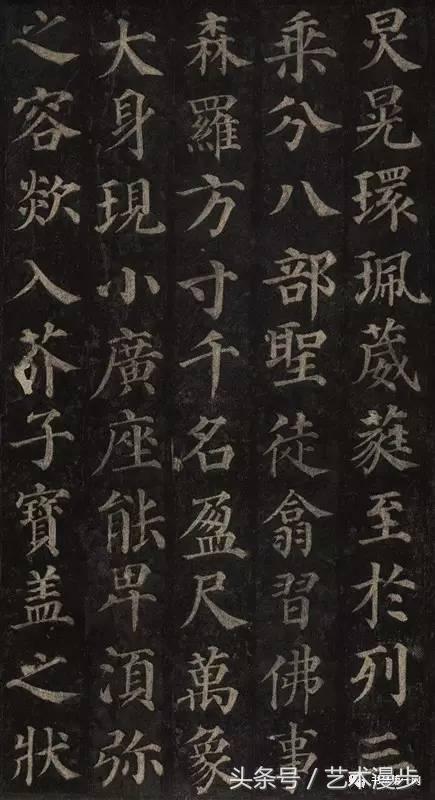 炅晃環珮葳蕤至於列二
乘分八部聖徒翕習佛事
森羅方寸千名盈尺萬象
大身現小廣座能卑須弥
之容欻入芥子寶盖之狀
头条号／艺术漫步